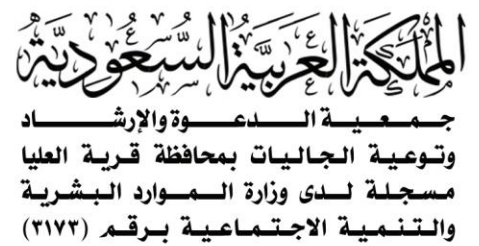 المملكة العربية السعودية
جمعية الدعوة والإرشاد
وتوعية الجاليات بمحافظة قرية العليا
مسجلة لدى وزارة الموارد البشرية
والتنمية الاجتماعية برقم (٣١٧٣)